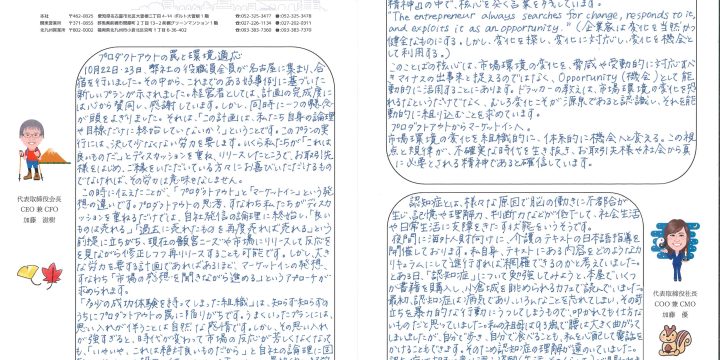 本社 〒462-0825 愛知県名古屋市北区大曽根三丁目4-44 ポルト大曽根 1 階 ☎052-325-3477 052-325-3478
東京営業所 〒371-0855
北九州営業所 〒802-0002 ☎093-383-7360 093-383-7370
プロダクトアウトの罠と環境適応
10月22日・23日、弊社の役職員全員が名古屋に集まり、合
宿を行いました。その中から、これまでのある好事例に基づいた
新しいプランが示されました。経営者としては、計画の完成度に
は心から賛同し、感謝しています。しかし、同時に一つの懸念
が頭をよぎりました。それは、「この計画は、私たち自身の論理
や目標だけに終始していないか？」ということです。このプランの実
行には、決して少なくない労力を要します。いくら私たちが「これは
良いものだ」とディスカッションを重ね、リリースしたところで、お取引先
様をはじめ、ご縁をいただいている方々にお喜びいただけるもの
でなければ、その労力は意味をなしません。
この時に伝えたことが、「プロダクトアウト」と「マーケットイン」という発
想の違いです。プロダクトアウトの思考、すなわち私たちがディスカ
ッションを重ねるだけでは、自社発信の論理に終始し、「良い
ものは売れる」「過去に売れたものを再度売れば売れる」という
前提に立ちがち、現在の顧客ニーズや市場にリリースして反応を
を見ながら修正しつつ再リリースすることも可能です。しかし、大き
な労力を要する計画であればあるほど、マーケットインの発想、
すなわち「市場の発想を聞きながら進める」というアプローチが
求められます。
「多少の成功体験を持ってしまった組織」は、知らず知らずのう
ちにプロダクトアウトの罠に陥りがちです。うまくいったプランには、
思い入れが伴うことは自然な感情です。しかし、その思い入れ
が強すぎると、時代が変わって市場の反応が芳しくなくなって
も、「いやいや、これは絶対良いものだから」と自社の論理に固
代表取締役会長
CEO 兼 CFO
加藤 滋樹
精神』の中で、核心を突く言葉を
"The entrepreneur always searches for change, responds to it,
and exploits it as an opportunity." (企業家は変化を当然かつ
健全なものにする。しかし、変化を探し、変化に対応し、変化を機会とし
て利用する。)
このことばの核心は、市場環境の変化を、脅威や受動的に対応すべ
きマイナスの出来事と捉えるのではなく、Opportunity（機会）として能
動的に活用することにあります。ドラッカーの教えは、市場環境の変化を恐
れるなというだけでなく、むしろ変化こそが源泉であると認識し、それを能
動的に組り込むことを求めています。
プロダクトアウトからマーケットインへ。
市場環境の変化を組織的に、体系的に機会へと変える。この視
点と規律が、不確実な時代を生き抜き、お取引先様や社会から真
に必要とされる精神であると確信しています。
認知症とは、様々な原因で脳の働きに不都合が
生じ、記憶や理解力、判断力などが低下して、社会生活
や日常生活に支障をきたす状態をいうそうです。
夜間に海外人財向けに、介護のテキストの日本語指導を
開催しております。私自身、テキストにある内容をどのようなカ
リキュラムにして進行すれば網羅できるのかと考えていました。
とある日、「認知症」について勉強してみようと、本屋でいくつ
か書籍を購入し、小倉城を眺められるカフェで読んでいました。
最初、認知症は病気であり、いろんなことを忘れてしまい、その苛
立ちを暴力的な行動にうつしてしまうもので、叩かれても仕方な
いものだと思っていました。私の祖母は94歳で腰は大きく曲がって
しまいましたが、自分で歩き、自分で食べることも、私を心配して電話を
かけることもできます。そのため認知症の理解が進んでいませんでした。
代表取締役社長
COO 兼 CMO
加藤 優